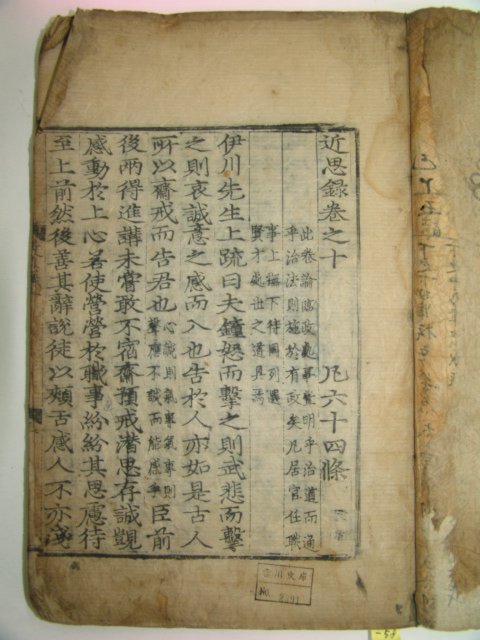 近思録卷之十 凡六十四條
此卷論臨政處事蓋明乎治道而通
乎治法則施於有政矣凡居官任職
事上撫下待同列選
賢才處世之道具焉
伊川先生上疏曰夫鐘怒而擊之則武悲而擊
之則哀誠意之感而入也告於人亦如是古人
所以齋戒而告君也
心誠則氣專氣專則
聲應不誠而能感乎
臣前
後兩得進講未嘗敢不宿齋預戒潜思存誠覬
感動於上心若使營營於職事紛紛其思慮待
至上前然後善其辭說徒以頰舌感人不亦淺
No. 2391